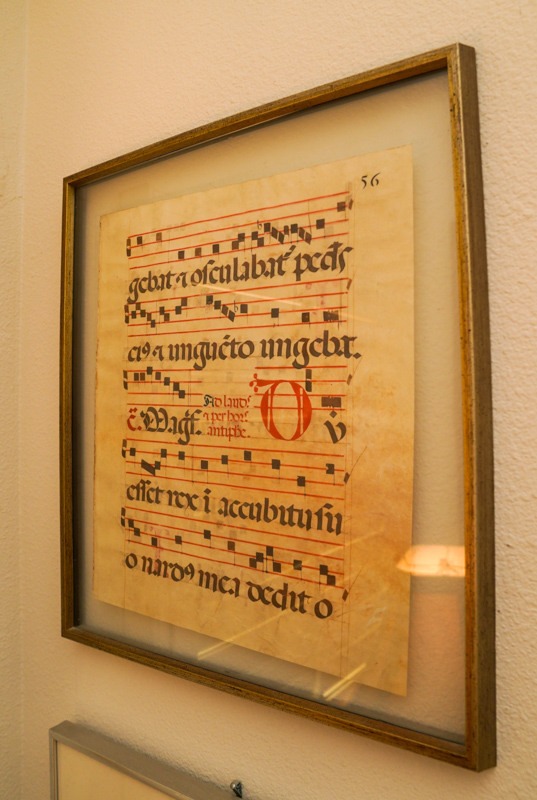 56
gebat ⁊ osculabat᷑ pedes
eiꝯ ⁊ unguēto ungebat.
c̄. Magt̄. Ad laud᷑. D v̄
⁊ per hor᷑
antiphe.
esset rex ī accubitu su
o nardꝯ mea dedit o